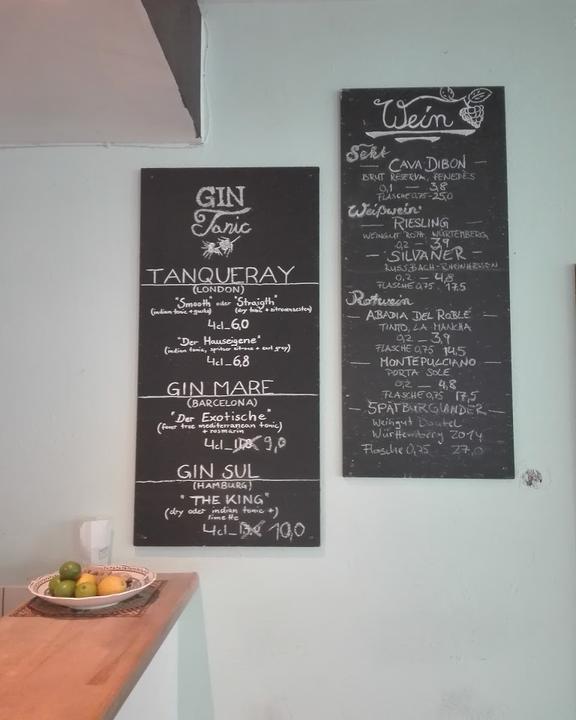 GIN
Tonic
TANQUERAY
(LONDON)
"Smooth" oder "Straigth"
(indian tonic + gurke) (dry tonic + zitronenzesten)
4cl_6,0
"Der Hauseigene"
(indian tonic, spritzer citrus + earl grey)
4cl_6,8
GIN MARE
(BARCELONA)
"Der Exotische"
(fever tree mediterranean tonic)
+ rosmarin
4cl_ 9,0
GIN SUL
(HAMBURG)
"THE KING"
(dry oder indian tonic +)
limette
4cl_ 10,0
Wein
Sekt
CAVA DIBON
BRUT RESERVA, PENEDES
0,1 — 3,8
FLASCHE 0,75 - 25,0
Weißwein
RIESLING
WEINGUT ROTH, WÜRTEMBERG
0,2 — 3,9
SILVANER
RUSSBACH - RHEINHESSEN
0,2 — 4,8
FLASCHE 0,75 17,5
Rotwein
ABADIA DEL ROBLE
TINTO, LA MANCHA
0,2 — 3,9
FLASCHE 0,75 14,5
MONTEPULCIANO
PORTA SOLE
0,2 — 4,8
FLASCHE 0,75 17,5
SPÄTBURGUNDER
Weingut Bautel
Württemberg 2014
Flasche 0,75 27,0